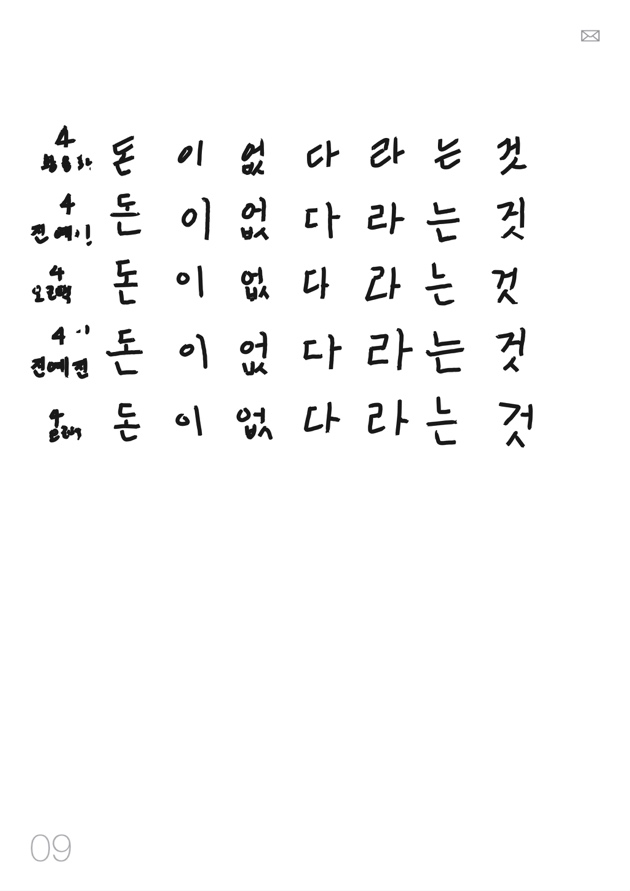 4
돈 이 없 다 라 는 것
4
전 예 이!
돈 이 없 다 라 는 것
4
돈 이 없 다 라 는 것
4-1
전예전
돈 이 없 다 라 는 것
4
돈 이 없 다 라 는 것
09